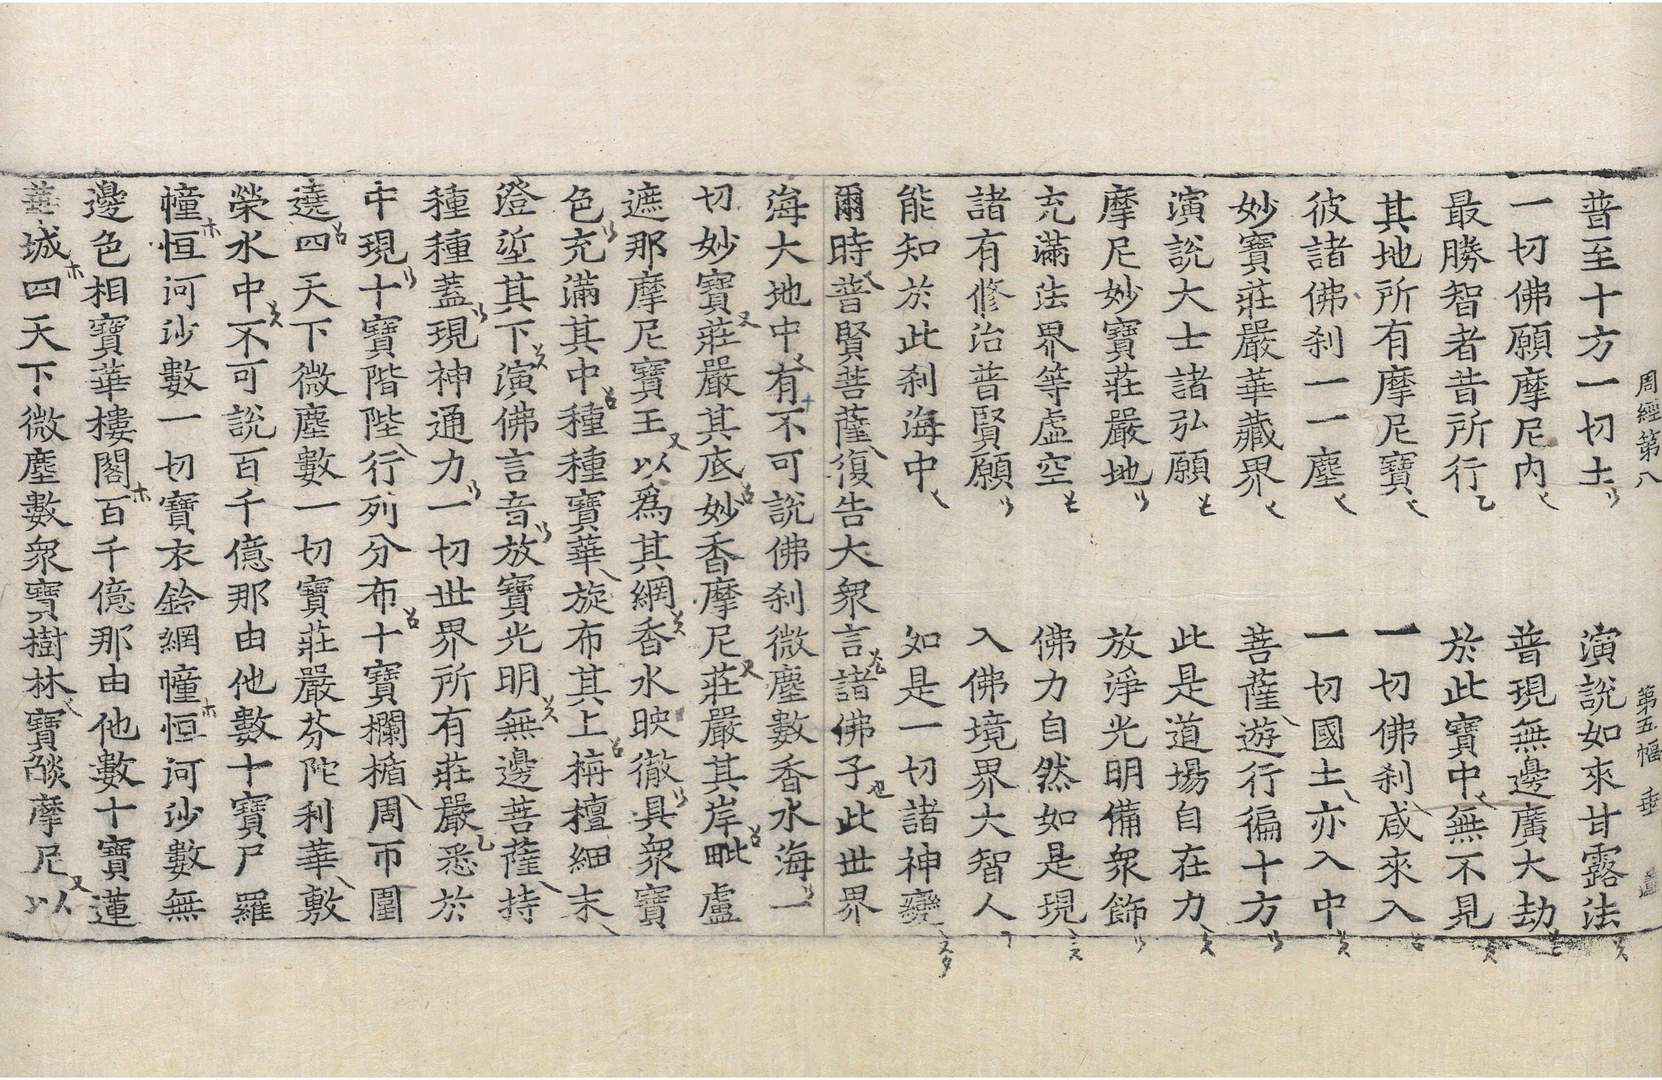 周經第八 第五幅
普至十方一切土 演說如來甘露法
一切佛願摩尼內 普現無邊廣大劫
最勝智者昔所行 於此寶中無不見
其地所有摩尼寶 一切佛刹咸來入
彼諸佛刹一一塵 一切國土亦入中
妙寶莊嚴華藏界 菩薩遊行徧十方
演說大士諸弘願 此是道場自在力
摩尼妙寶莊嚴地 放淨光明備衆飾
充滿法界等虛空 佛力自然如是現
諸有修治普賢願 入佛境界大智人
能知於此刹海中 如是一切諸神變
爾時普賢菩薩復告大衆言諸佛子此世界
海大地中有不可說佛刹微塵數香水海一
切妙寶莊嚴其底妙香摩尼莊嚴其岸毗盧
遮那摩尼寶王以爲其網香水映徹具衆寶
色充滿其中種種寶華旋布其上栴檀細末
澄垽其下演佛言音放寶光明無邊菩薩持
種種蓋現神通力一切世界所有莊嚴悉於
中現十寶階陛行列分布十寶欄楯周帀圍
遶四天下微塵數一切寶莊嚴芬陀利華敷
榮水中不可說百千億那由他數十寶尸羅
幢恒河沙數一切寶衣鈴網幢恒河沙數無
邊色相寶華樓閣百千億那由他數十寶蓮
華城四天下微塵數衆寶樹林寶燄摩尼以